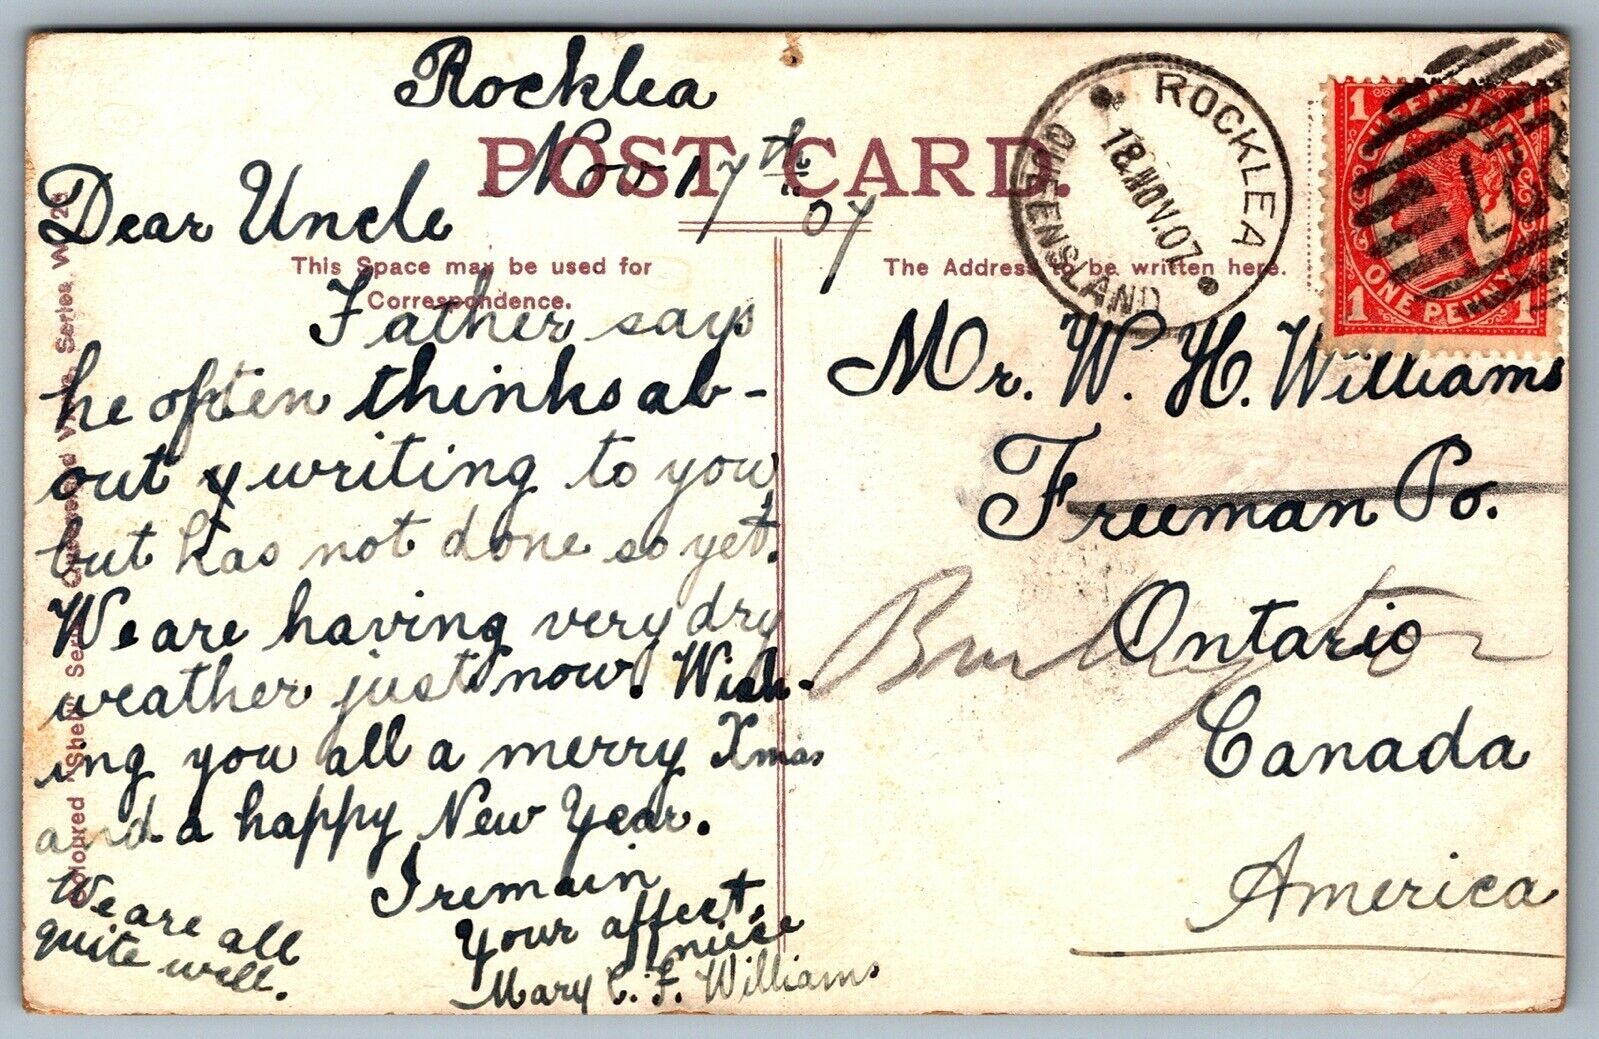 Rocklea
Nov 17th 07
POST CARD.
Dear Uncle
This Space may be used for
Correspondence.
Father says
he often thinks ab-
out writing to you,
but has not done so yet.
We are having very dry
weather just now. Wish-
ing you all a merry Xmas
and a happy New Year.
I remain
Your affect.
niece
Mary C. F. Williams
We are all
quite well.
The Address to be written here.
Mr. W. H. Williams
Freeman Po.
Burlington
Ontario
Canada
America
ROCKLEA
18 NOV.07
QUEENSLAND
1 QUEENSLAND 1
1 ONE PENNY 1
Coloured "Shell" Series